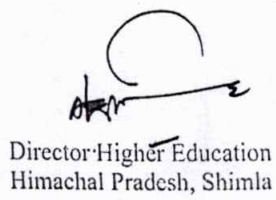 Director Higher Education
Himachal Pradesh, Shimla